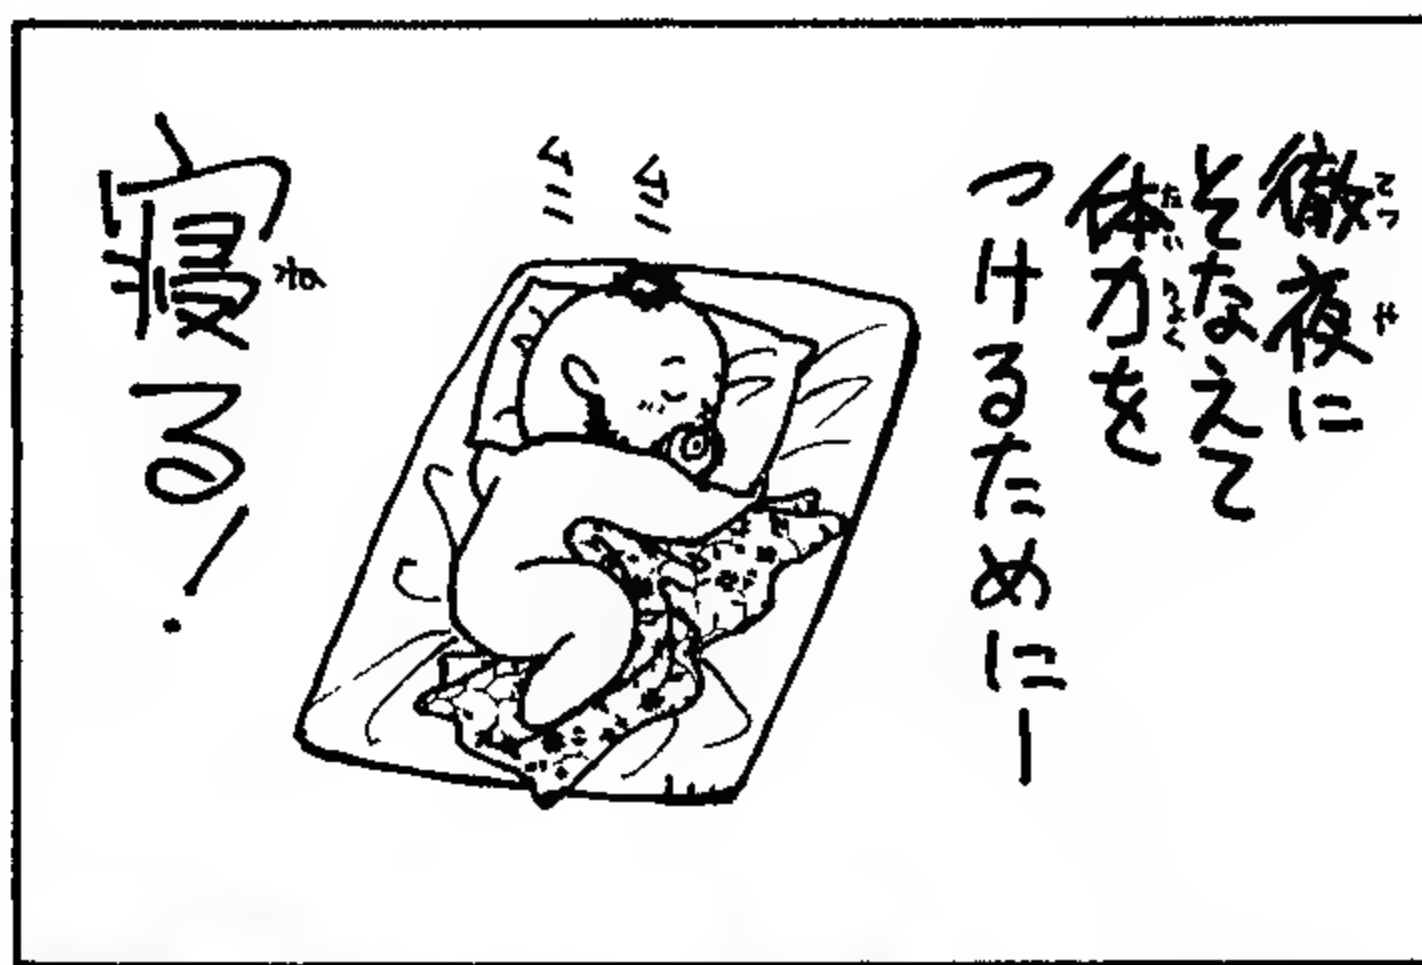 徹夜に
そなえて
体力を
つけるためにー
ムニ
ムニ
寝る!